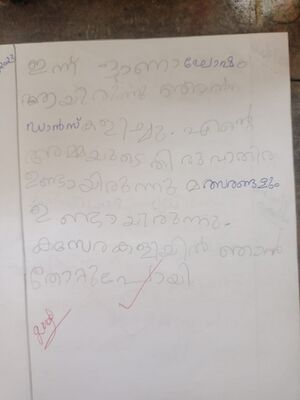 ഇന്ന് ഓണാഘോഷം
ആയിരുന്നു ഞാൻ
ഡാൻസ് കളിച്ചു. എന്റെ
അമ്മയുടെ തിരുവാതിര
ഉണ്ടായിരുന്നു മത്സരങ്ങളും
ഉണ്ടായിരുന്നു.
കസേരകളിയിൽ ഞാൻ
തോറ്റുപോയി
good